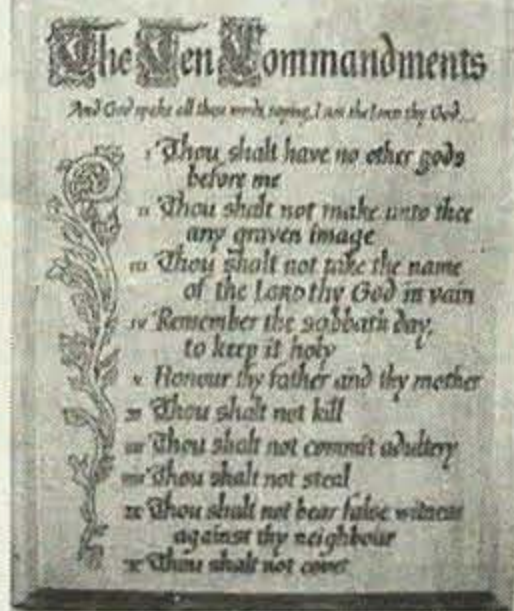 The Ten Commandments
And God spake all these words, saying, I am the LORD thy God...
I Thou shalt have no other gods
before me
II Thou shalt not make unto thee
any graven image
III Thou shalt not take the name
of the LORD thy God in vain
IV Remember the sabbath day,
to keep it holy
V Honour thy father and thy mother
VI Thou shalt not kill
VII Thou shalt not commit adultery
VIII Thou shalt not steal
IX Thou shalt not bear false witness
against thy neighbour
X Thou shalt not covet